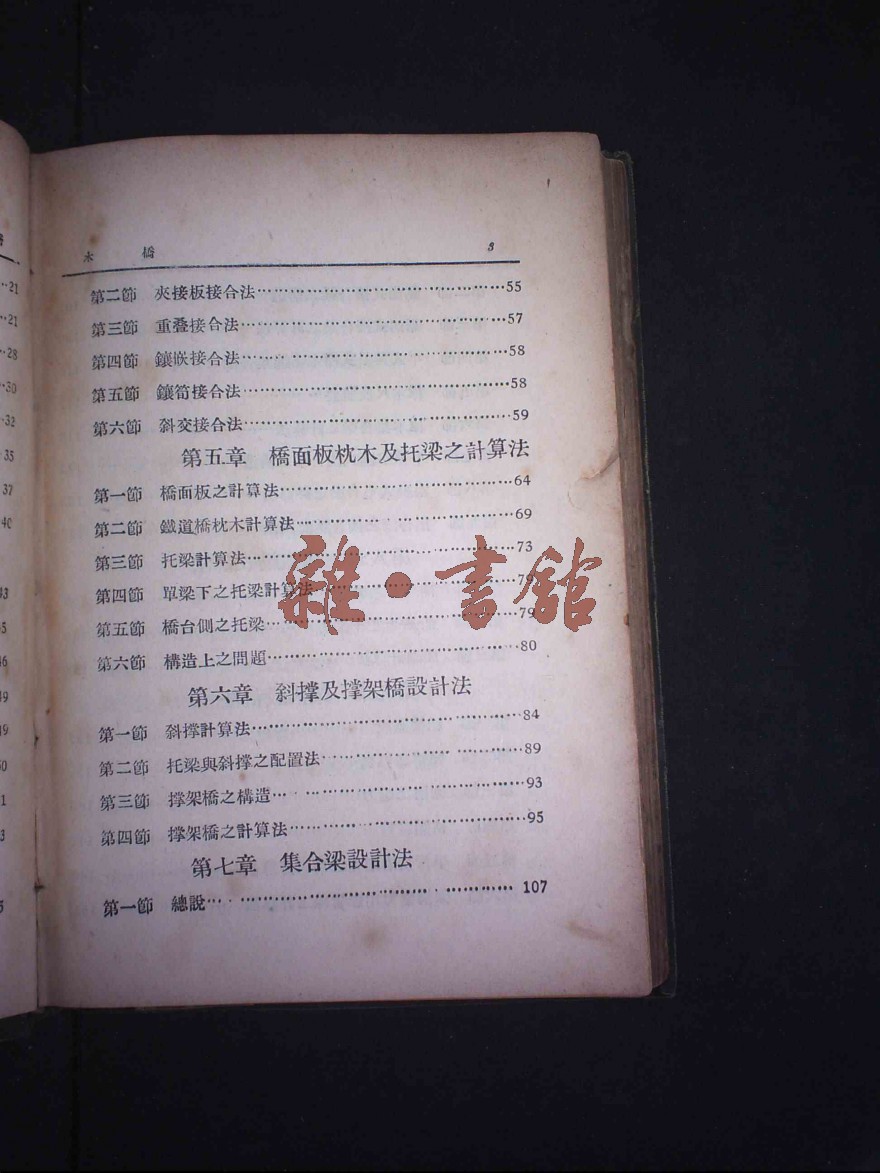 木 橋 3
第二節 夾接板接合法 55
第三節 重叠接合法 57
第四節 鑲嵌接合法 58
第五節 鑲筍接合法 58
第六節 斜交接合法 59
第五章 橋面板枕木及托梁之計算法
第一節 橋面板之計算法 64
第二節 鐵道橋枕木計算法 69
第三節 托梁計算法 73
第四節 單梁下之托梁計算法 79
第五節 橋台側之托梁 79
第六節 構造上之問題 80
第六章 斜撐及撐架橋設計法
第一節 斜撐計算法 84
第二節 托梁與斜撐之配置法 89
第三節 撐架橋之構造 93
第四節 撐架橋之計算法 95
第七章 集合梁設計法
第一節 總說 107
雜·書館
21
21
28
30
32
35
37
40